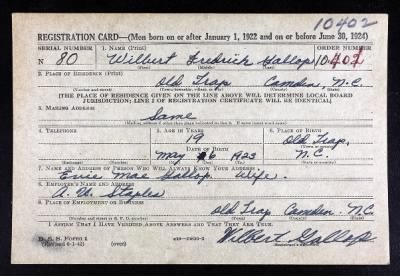 10402
REGISTRATION CARD—(Men born on or after January 1, 1922 and on or before June 30, 1924)
SERIAL NUMBER 1. NAME (Print) ORDER NUMBER
N 80 Wilbert Fredrick Gallop 10,402
(First) (Middle) (Last)
2. PLACE OF RESIDENCE (Print)
Old Trap Camden N.C.
(Number and street) (Town, township, village, or city) (County) (State)
[THE PLACE OF RESIDENCE GIVEN ON THE LINE ABOVE WILL DETERMINE LOCAL BOARD
JURISDICTION; LINE 2 OF REGISTRATION CERTIFICATE WILL BE IDENTICAL]
3. MAILING ADDRESS
Same
[Mailing address if other than place indicated on line 2. If same insert word same]
4. TELEPHONE 5. AGE IN YEARS 6. PLACE OF BIRTH
19 Old Trap,
DATE OF BIRTH
May 6 1923 N.C.
7. NAME AND ADDRESS OF PERSON WHO WILL ALWAYS KNOW YOUR ADDRESS
Mae Gallop Wife.
8. EMPLOYER'S NAME AND ADDRESS
Staples
9. PLACE OF EMPLOYMENT OR BUSINESS
Old Trap Camden N.C.
(Number and street or R. F. D. number) (Town) (County) (State)
I AFFIRM THAT I HAVE VERIFIED ABOVE ANSWERS AND THAT THEY ARE TRUE.
D. S. S. Form 1
(Revised 6-1-42) (over) Wilbert Gallop